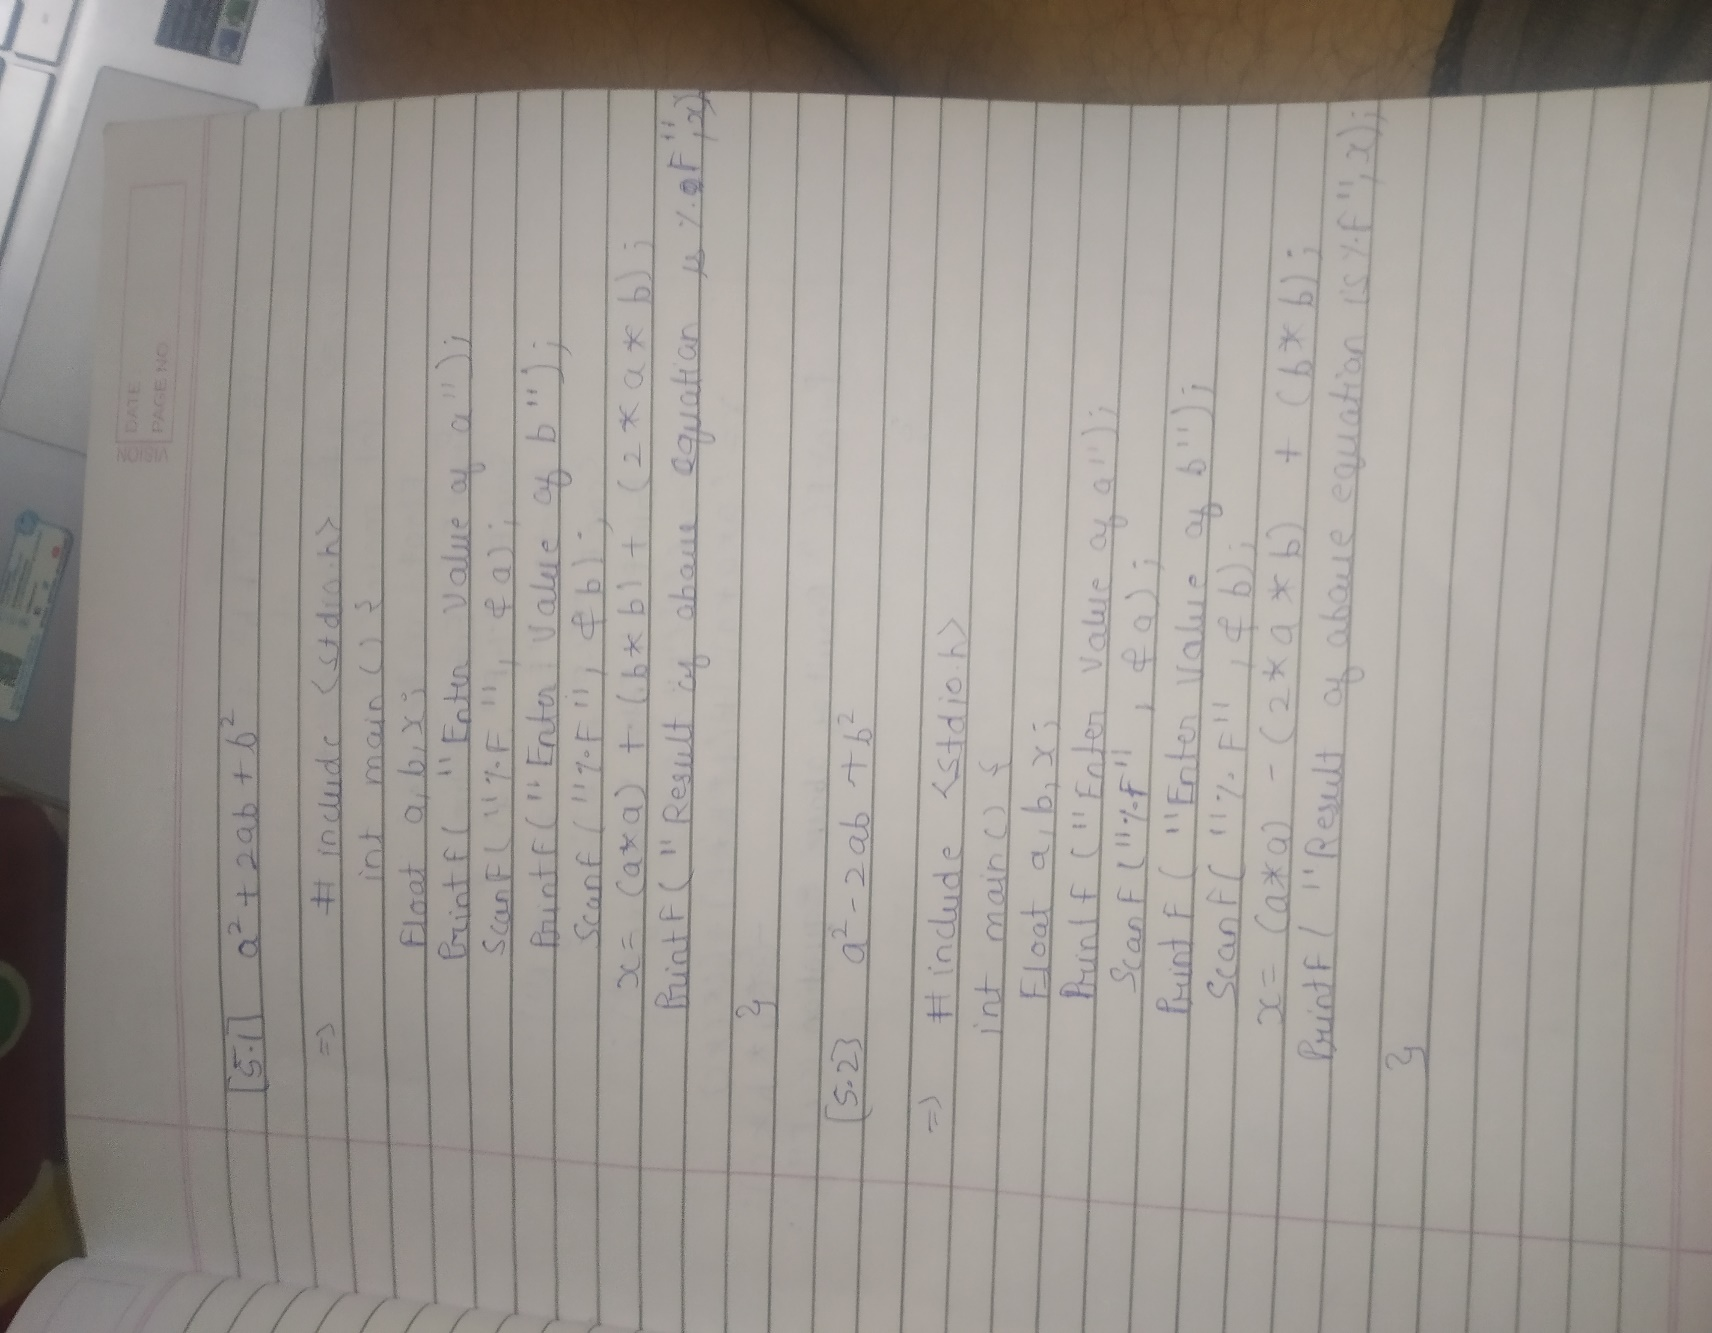 VISION DATE
PAGE NO
[5.1] a² + 2ab + b²
=> # include <stdio.h>
int main () {
Float a, b, x;
Printf ( " Enter Value of a");
ScanF ( "%F ", &a);
Printf ( "Enter Value of b");
Scanf ( "%F", &b);
x = (a*a) + (b*b) + (2*a*b);
PrintF ( "Result of above equation is %.2F", x)
}
[5.2] a² - 2ab + b²
=> # include <stdio.h>
int main () {
Float a, b, x;
Printf ( "Enter Value of a");
ScanF ( "%F", &a);
PrintF ( "Enter Value of b");
ScanF ( "%F", &b);
x = (a*a) - (2*a*b) + (b*b);
PrintF ( "Result of above equation is %f", x);
}